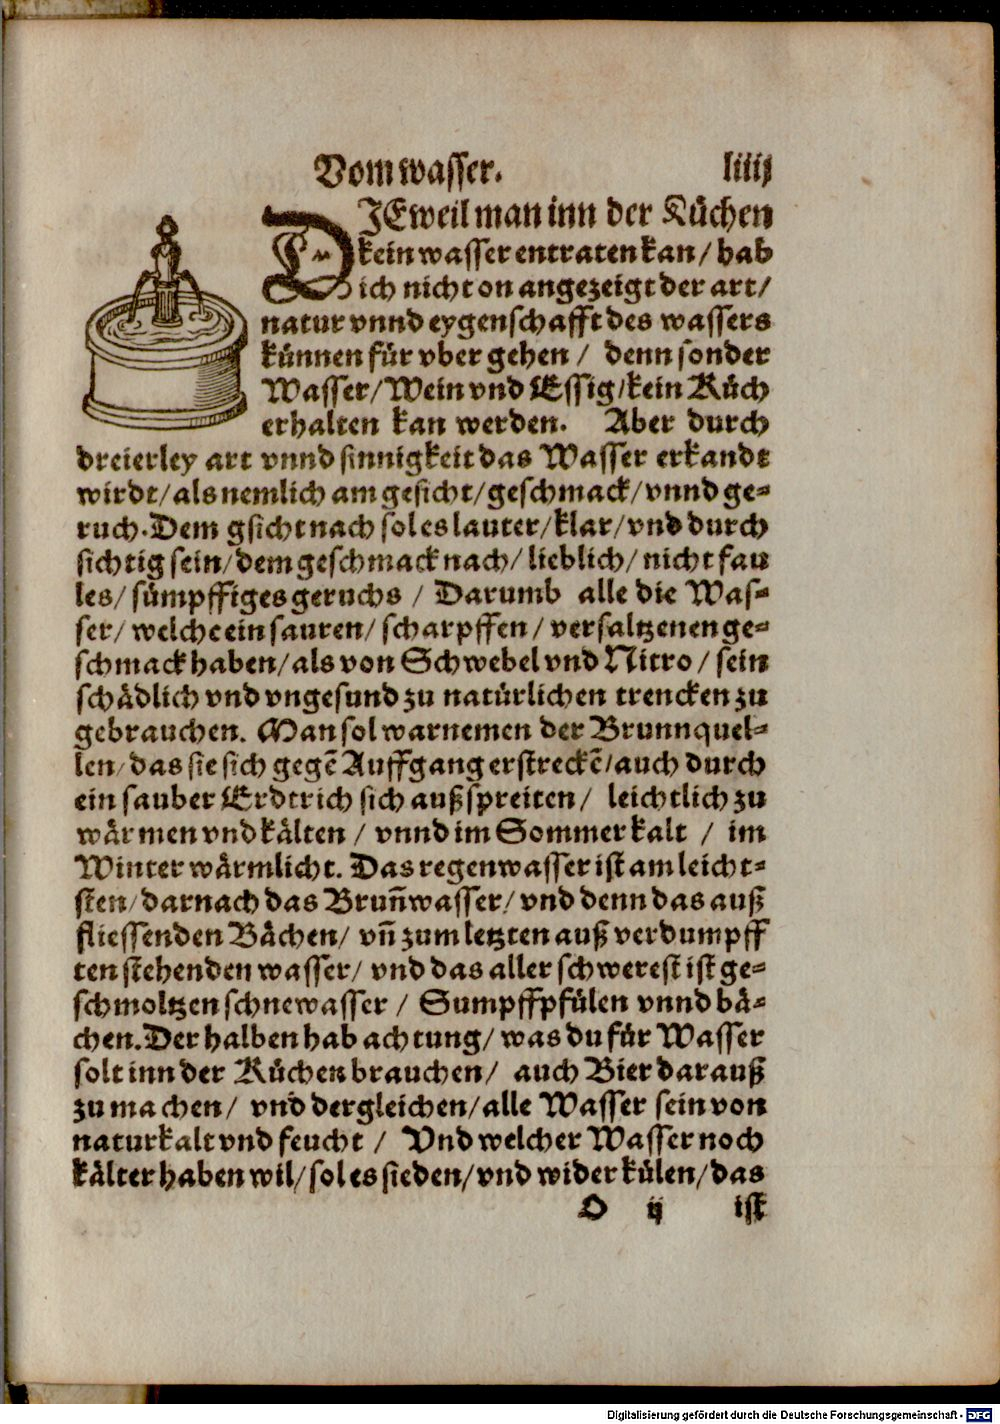 Vom wasser. liiij
DJEweil man inn der Küchen
kein wasser entraten kan / hab
ich nicht on angezeigt der art /
natur vnnd eygenschafft des wassers
künnen für vber gehen / denn sonder
Wasser / Wein vnd Essig / kein Küch
erhalten kan werden. Aber durch
dreierley art vnnd sinnigkeit das Wasser erkandt
wirdt / als nemlich am gesicht / geschmack / vnnd ge-
ruch. Dem gsicht nach sol es lauter / klar / vnd durch
sichtig sein / dem geschmack nach / lieblich / nicht fau
les / sümpffiges geruchs / Darumb alle die Was-
ser / welche ein sauren / scharpffen / versaltzenen ge-
schmack haben / als von Schwebel vnd Nitro / sein
schädlich vnd vngesund zu natürlichen trencken zu
gebrauchen. Man sol warnemen der Brunnquel-
len / das sie sich gegē Auffgang erstreckē / auch durch
ein sauber Erdtrich sich außspreiten / leichtlich zu
wärmen vnd kälten / vnnd im Sommer kalt / im
Winter wärmlicht. Das regenwasser ist am leicht-
sten / darnach das Brun̄wasser / vnd denn das auß
fliessenden Bächen / vn̄ zum letzten auß verdumpff
ten stehenden wasser / vnd das aller schwerest ist ge-
schmoltzen schnewasser / Sumpffpfülen vnnd bä-
chen. Der halben hab achtung / was du für Wasser
solt inn der Küchen brauchen / auch Bier darauß
zu machen / vnd dergleichen / alle Wasser sein von
natur kalt vnd feucht / Vnd welcher Wasser noch
kälter haben wil / sol es sieden / vnd wider külen / das
O ij ist
Digitalisierung gefördert durch die Deutsche Forschungsgemeinschaft - DFG